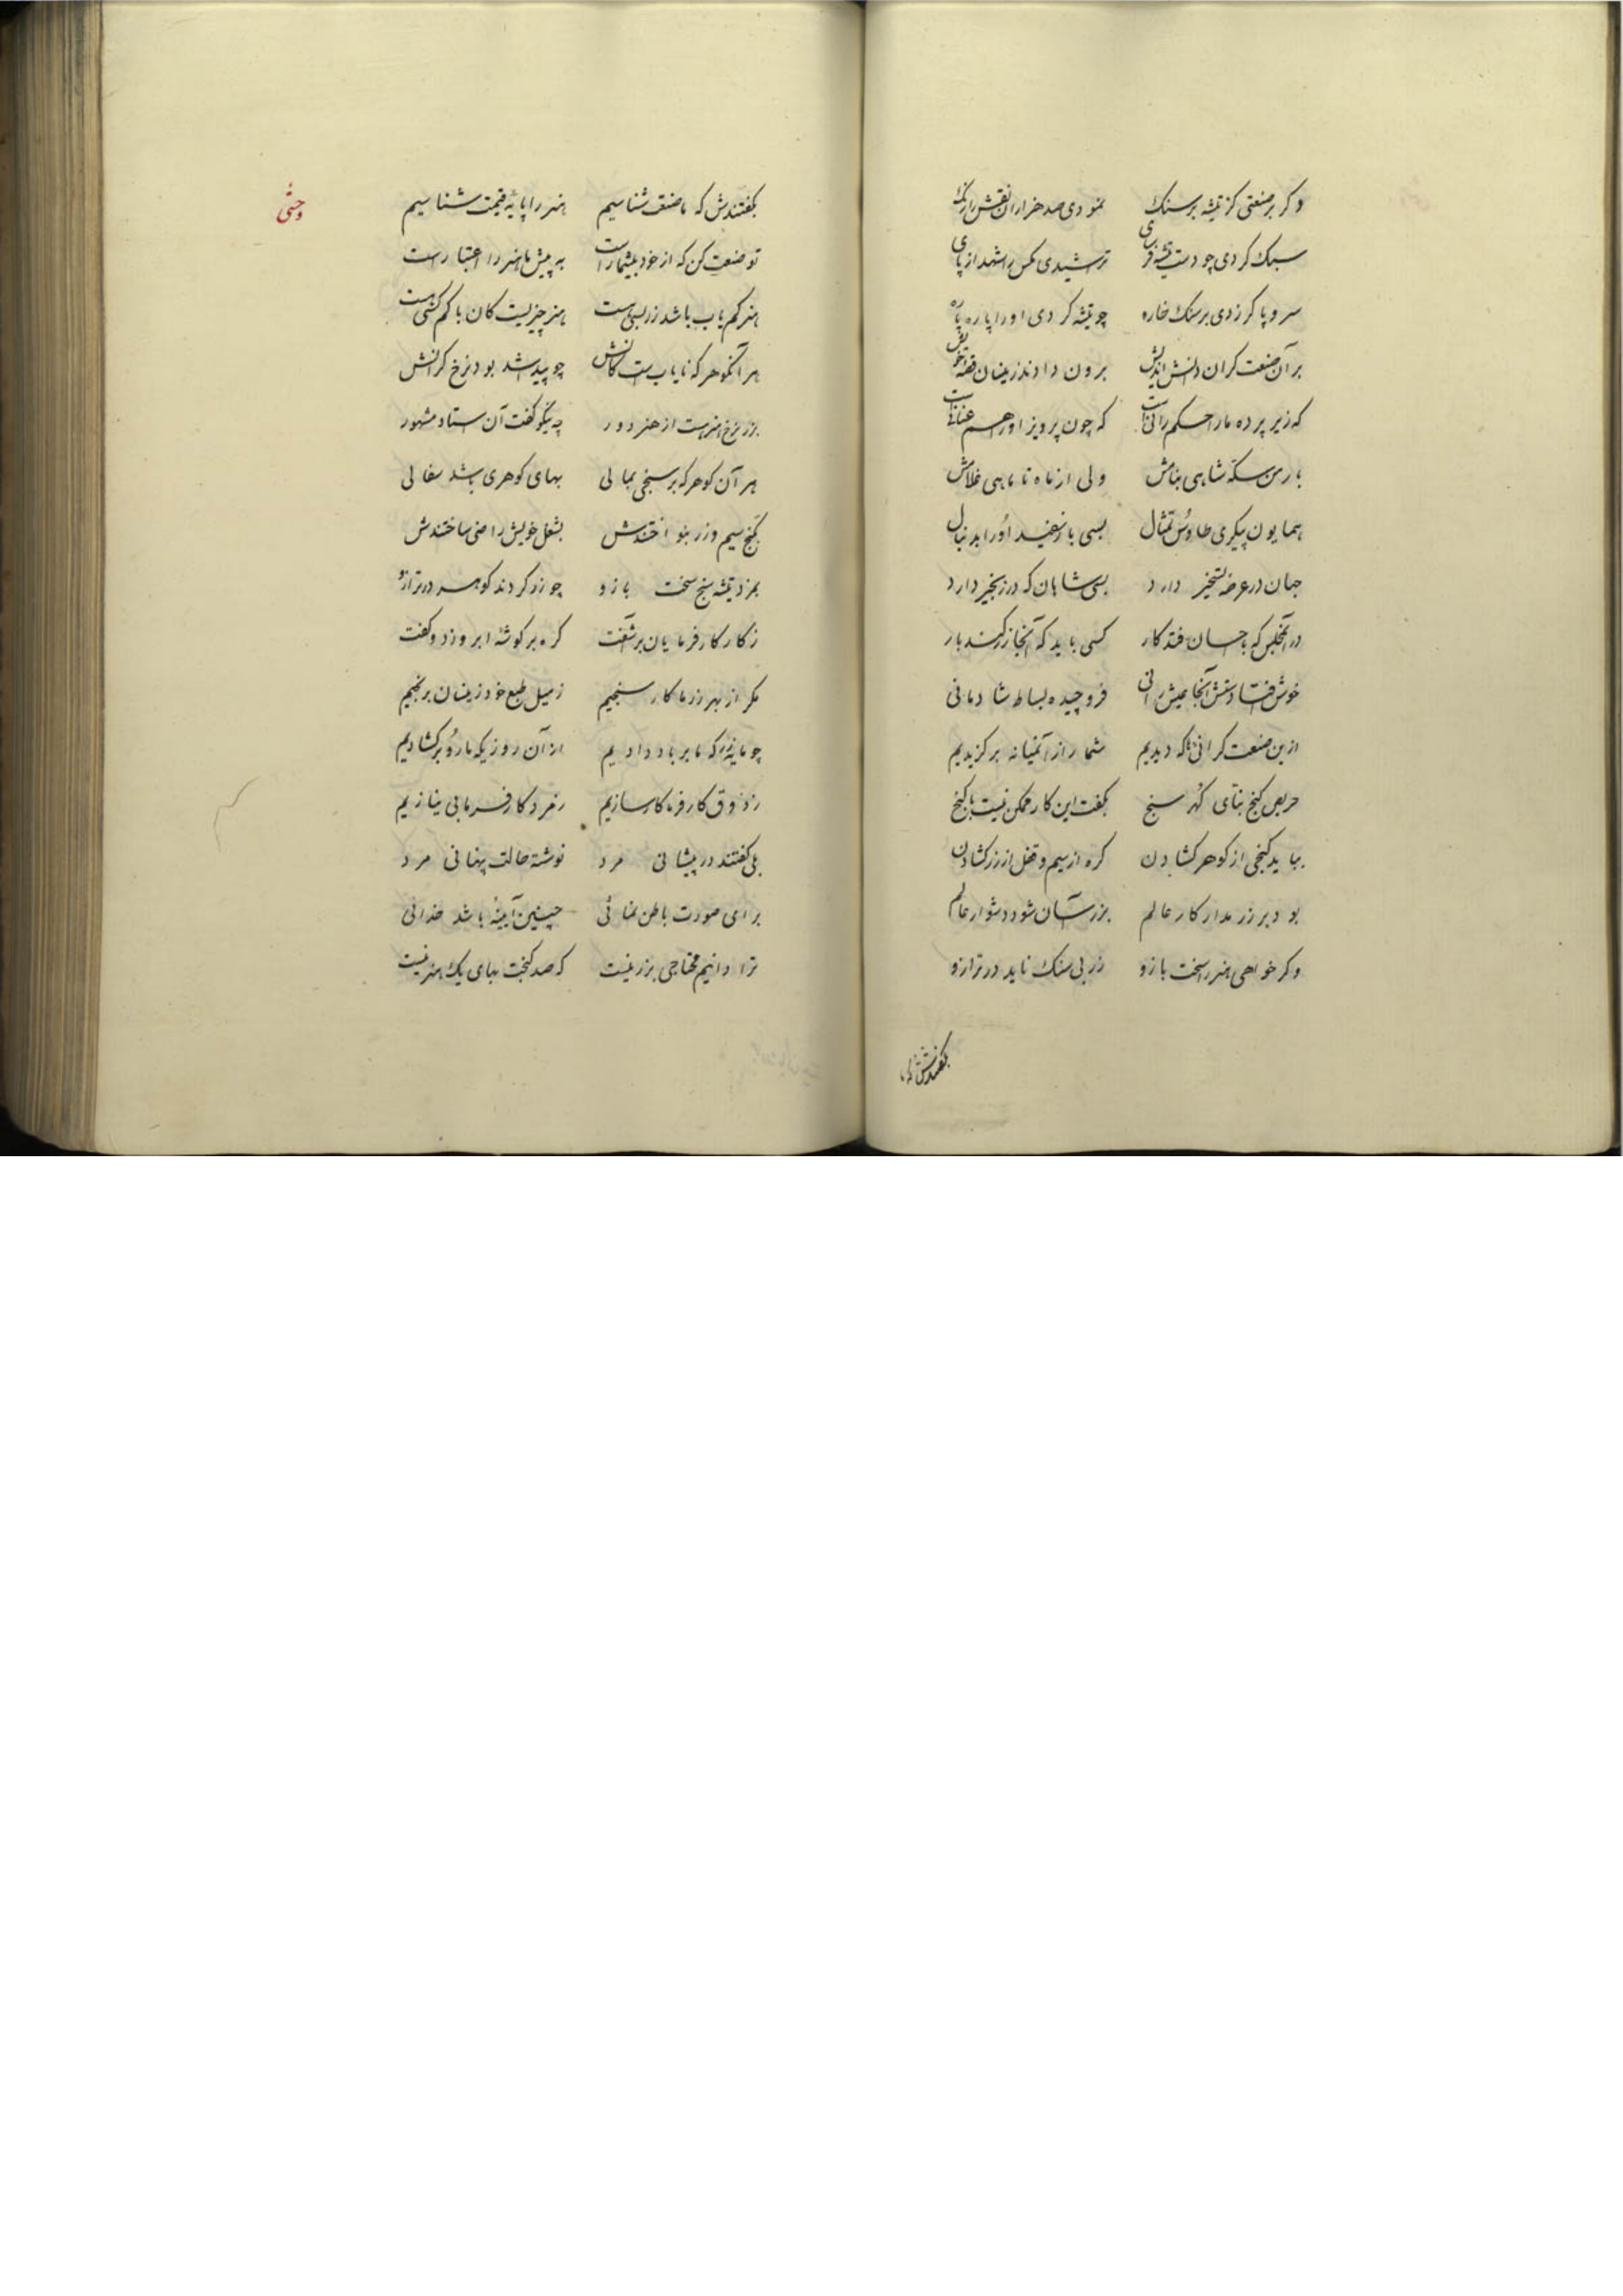 دکر بر صنعتی کز تیشه بر سنک نمودی صد هزاران نقش ارژنک
سبک کردی چو دست تیشه فرسای تراشیدی مکس را شهد از پای
سر و پا کر زدی بر سنک خاره چو تیشه کردی او را پاره پاره
بر آن صنعت کران دانش اندیش برون دادند زینسان قصهٔ خویش
که زیر پرده ما را حکمرانیست که چون پرویز او را هم عنانیست
باری سکه شاهی بنامش ولی از ماه تا ماهی غلامش
همایون پیکری طاوس تمثال بسی باز سفید او را بدنبال
جهان در عرضهٔ تسخیر دارد بسی شاهان که در زنجیر دارد
در آنمجلس که با حسان فتد کار کسی باید که آنجا زر کشد بار
خوش افتادستش آنجا عیش رانی فرو چیده بساط شادمانی
ازین صنعت کرانی که دیدیم شما را ز آنمیانه برکزیدیم
حریص کنج بنای کهر سنج بکفت این کار ممکن نیست با کنج
بباید کنجی از کوهر کشادن کره از سیم و قفل از زر کشادن
بود بر زر مدار کار عالم بزر آسان شود دشوار عالم
وکر خواهی هنر را سخت بازو زر بی سنک ناید در ترازو
بکفتندش که ما
وحشی
بکفتندش که ما صنعت شناسیم هنر را پایهٔ قیمت شناسیم
تو صنعت کن که از خود بیشمار است به پیش ما هنر را اعتبار است
هنر کم یاب باشد زر بسی هست هنر چیزیست کان با کم کسی هست
هر آنکوهر که نایاب ست کانش چو پیدا شد بود نرخ کرانش
بزر نرخ هنر هست از هنر دور چه نیکو کفت آن استاد مشهور
هر آن کوهر که بر سنجی بمالی بهای کوهری باشد سفالی
بکنج سیم و زر بنواختندش بشغل خویش راضی ساختندش
بمزد تیشه سنج سخت بازو چو زر کردند کوهر در ترازو
ز کار کارفرمایان برآشفت کره بر کوشهٔ ابرو زد و کفت
مکر از بهر زر ما کار سنجیم ز میل طبع خود زینسان برنجیم
چو ما زر را که ما بر باد دادیم از آن روزیکه بازو برکشادیم
ز ذوق کارفرما کار سازیم ز مزد کارفرمایی بی نیازیم
بلی کفتند در پیشانی مرد نوشته حالت پنهانی مرد
برای صورت باطن نمائی چنین آیینهٔ باشد خدائی
ترا دانیم محتاجی بزر نیست که صد کنجت بهای یک هنر نیست